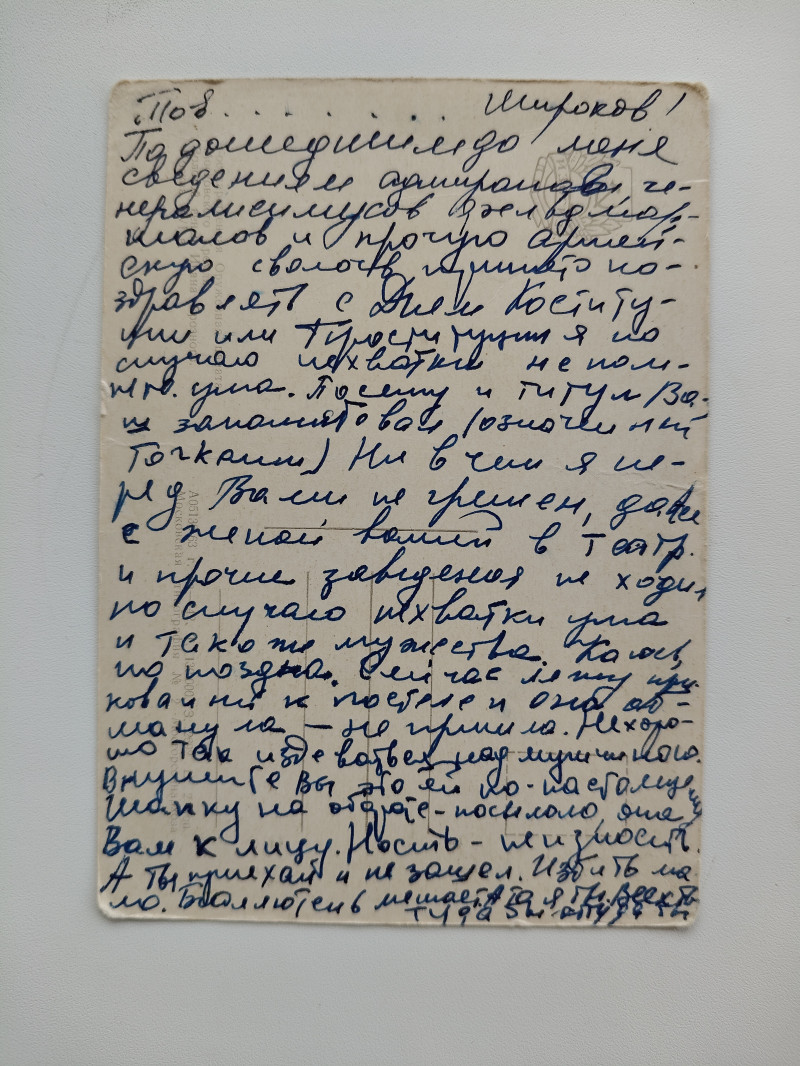 Тов. . . . . . . . Широков!
По дошедшим до меня
сведениям адмиралов ге-
нералисимусов фельдмар-
шалов и прочую армей-
скую сволочь принято по-
здравлять с Днем Коститу-
ции или Проституции я по
случаю нехватки не пом-
ню. ума. Посему и титул Ва-
ш запамятовал (означенный
точками) Ни в чем я пе-
ред Вами не грешен, даже
с женой вашей в театр.
и прочие заведения не ходил
по случаю нехватки ума
и так же мужества. Каюсь,
но поздно. Сейчас лежу при-
кованный к постеле и она об-
манула — не пришла. Нехоро-
шо так издеваться над мужчиной.
Внушите Вы это ей по-настоящему
Шапку на обороте - посылаю, она
Вам к лицу. Носить - не износить.
А ты приехал и не зашел. Избить ма-
ло. Бюллютень мешает. А то я ты
туда